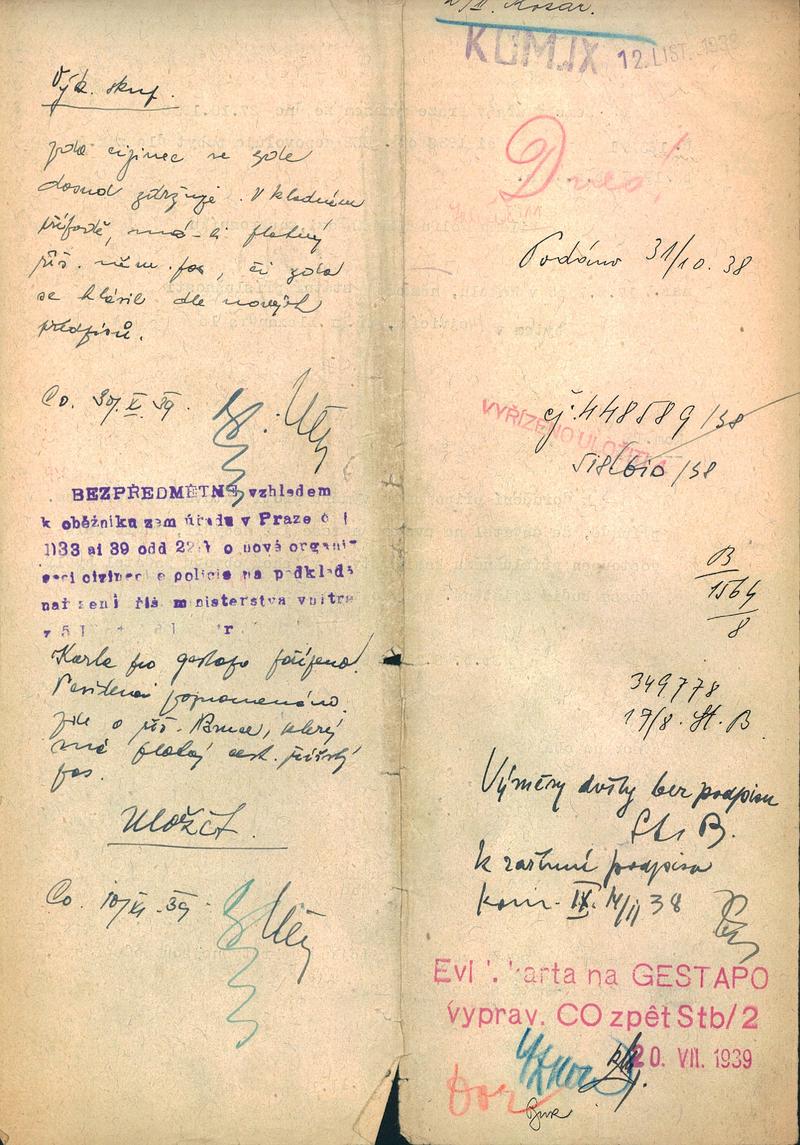 Výk. skup.
zda cizinec se zde
dosud zdržuje. V kladném
případě, má-li platný
říš. něm. pas, či zda
se hlásil dle nových
předpisů.
Co. 30/X. 39.
BEZPŘEDMĚTNÉ vzhledem
k oběžníku zem úřadu v Praze č j
1133 ai 39 odd 22 o nové organi
saci cizinecké policie na podkladě
nařízení říš ministerstva vnitra
z 5
Karta pro gestapo pořízena.
Evidenci poznamenáno.
Jde o přísl. Němce, který
má platný cest. říšský
pas.
Uložit.
Co. 10/XI. 39.
KOM.IX 12. LIST. 1938
Dnes!
Podáno 31/10. 38
čj. 448589/38
VYŘÍZENO ULOŽIT
518610/38
B
1564
8
349778
17/8. St. B
Výměry došly bez podpisu
St. B.
K podpisu
kom. IX. 14/11 38
Evid. karta na GESTAPO
vyprav. CO zpět Stb/2
20. VII. 1939